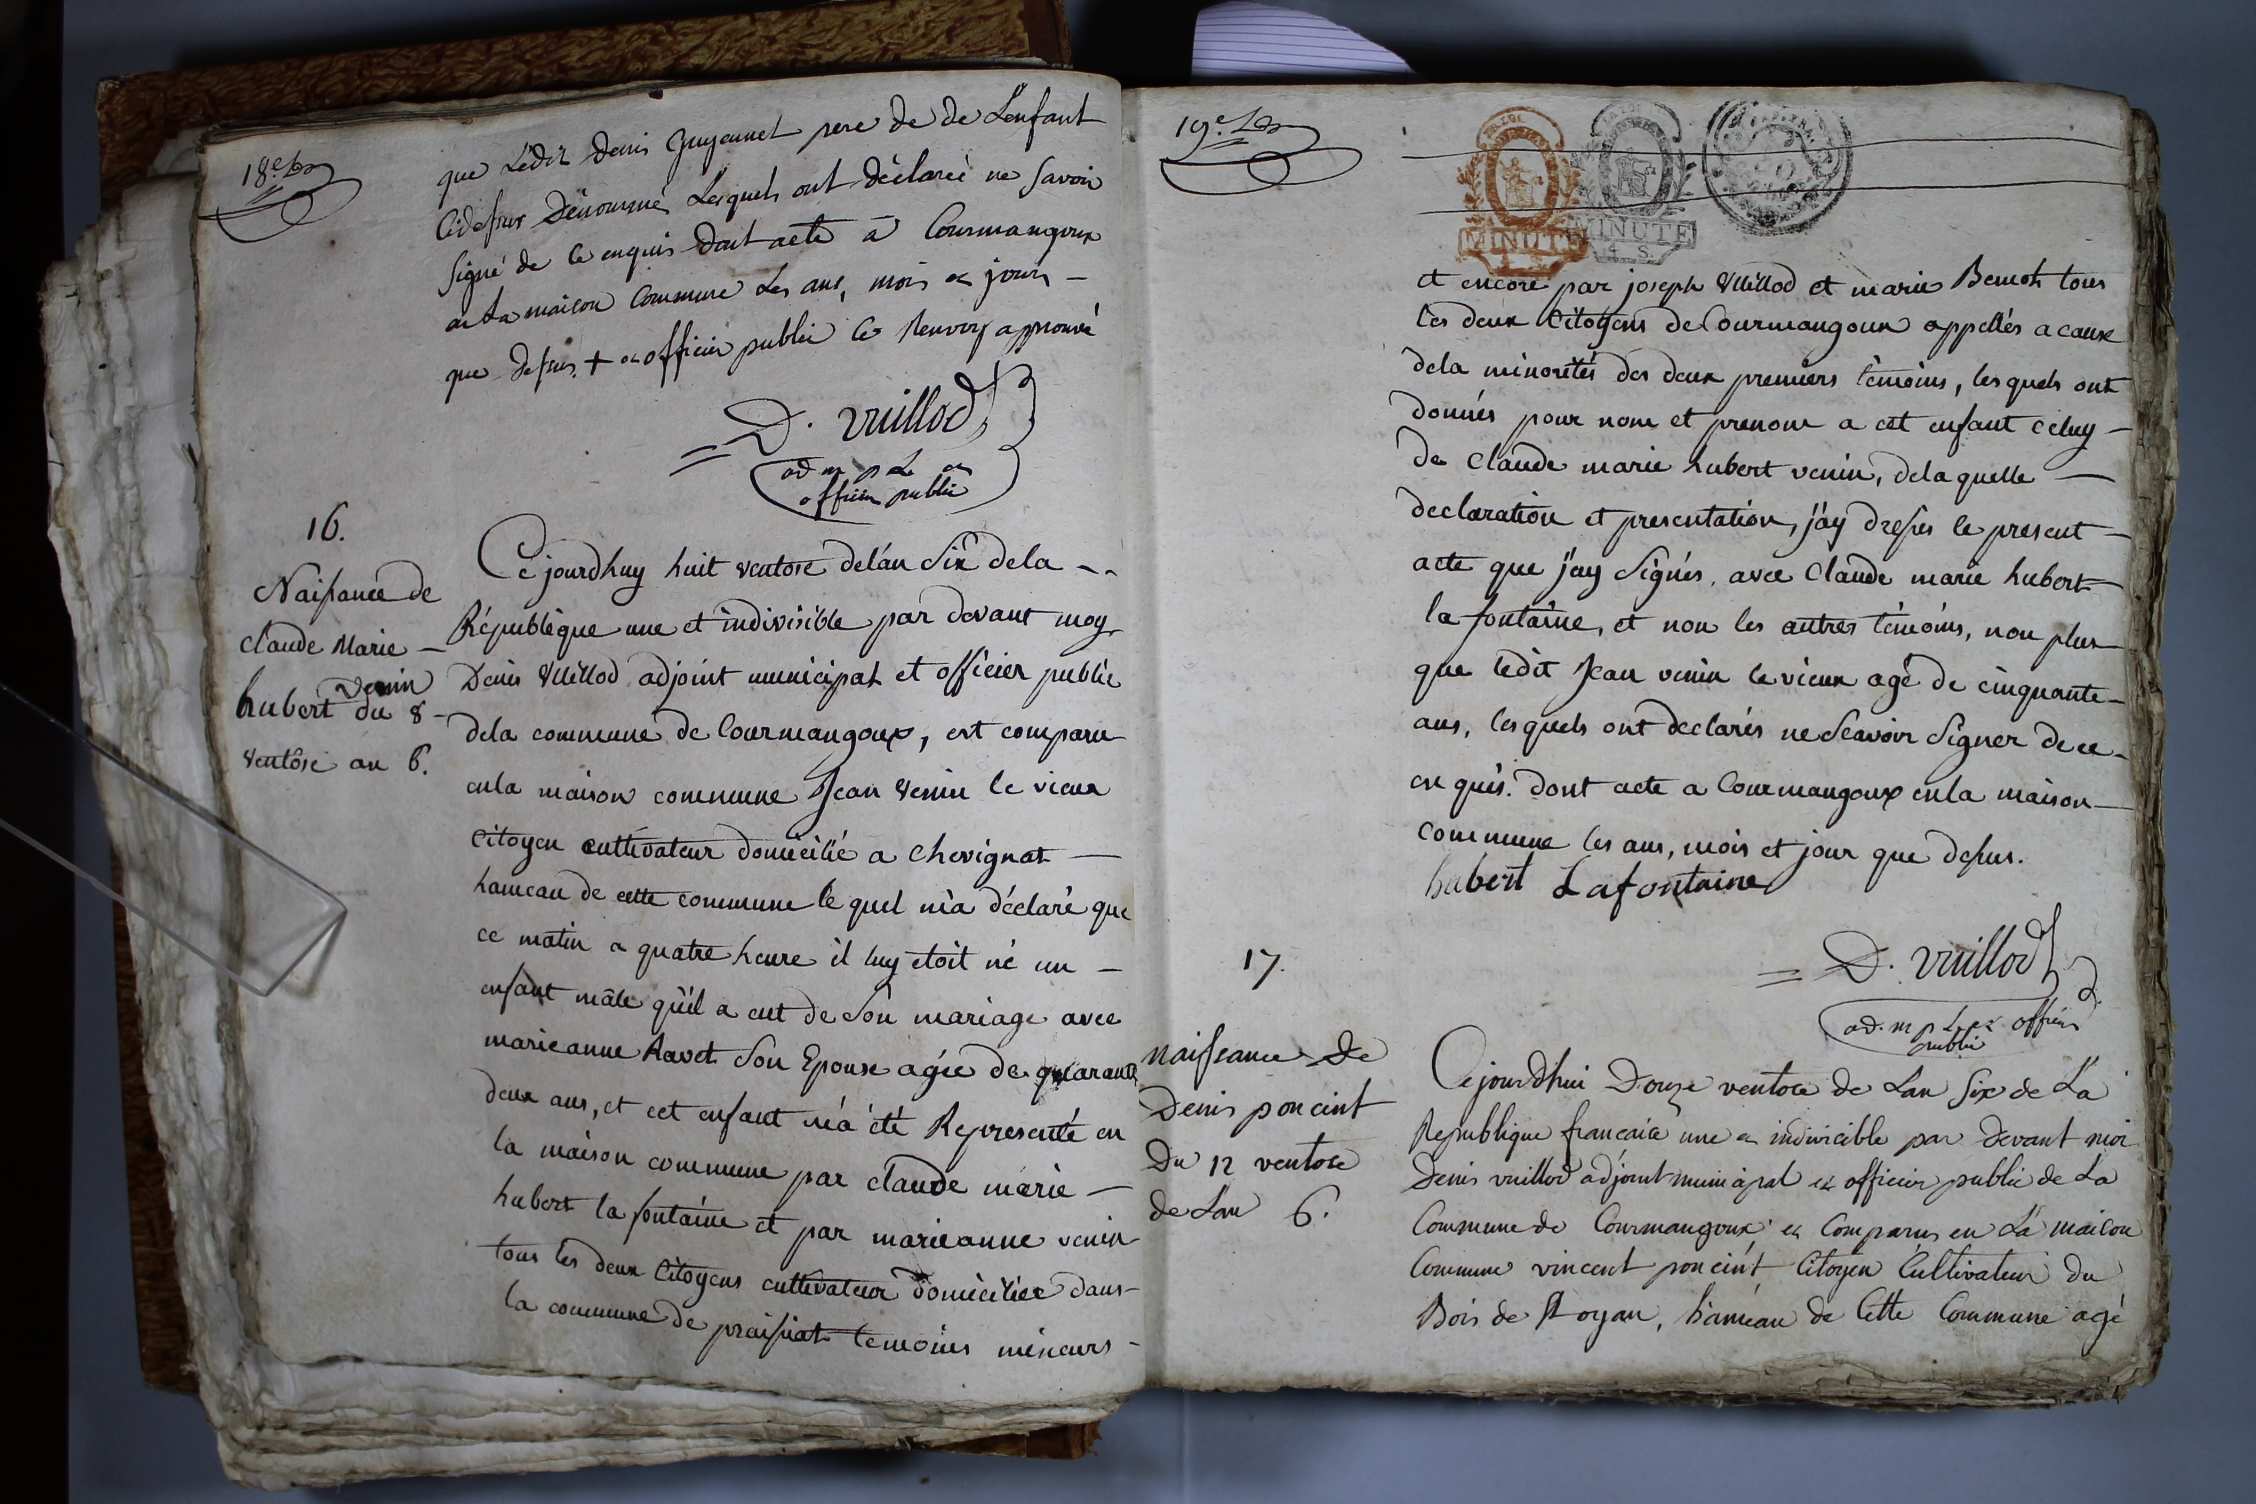 18e
que Ledit Denis Guyennet pere de de L'enfant
Cidessus Dénommé Lesquels ont déclaré ne savoir
signé de ce enquis dont acte a Courmangoux
en La maison Commune Les ans, mois et jours
que dessus + et officier public Ce Renvoy approuvé
D. Vuillod
ad m p L et
officier public
16.
Naissance de
Claude Marie
venin
hubert du 8
ventôse an 6.
Ce jourdhuy huit ventose de l'an Six de la
République une et indivisible par devant moy
Denis Vuillod adjoint municipal et officier public
de la commune de Courmangoux, est comparu
en la maison commune Jean Venin le vieux
Citoyen cultivateur domicilié a Chevignat
hameau de cette commune le quel m'a déclaré que
ce matin a quatre heure il luy etoit né un
enfant mâle qu'il a eut de son mariage avec
marieanne Ravet Son Epouse agée de quarante
deux ans, et cet enfant m'a été Representé en
la maison commune par claude marie
hubert la fontaine et par marieanne venin
tous les deux Citoyens cultivateur domiciliée dans
la commune de praissiat temoins mineurs
19e
MINUTE
MINUTE
4 S.
et encore par joseph Vuillod et marie Benoit tous
les deux Citoyens de Courmangoux appellés a cause
de la minorités des deux premiers témoins, les quels ont
donnés pour nom et prenom a cet enfant celuy
de Claude marie hubert venin, de la quelle
declaration et presentation, j'ay dressés le present
acte que j'ay Signés, avec Claude marie hubert
la fontaine, et non les autres témoins, non plus
que ledit Jean venin le vieux agé de cinquante
ans, les quels ont declarés ne Scavoir Signer de ce
en quis. Dont acte a Courmangoux en la maison
commune les ans, mois et jour que dessus.
hubert Lafontaine
D. Vuillod
ad. m p L et officier
public
17.
naissance De
Denis poncint
Du 12 ventose
de Lan 6.
Cejourdhui Douze ventose de Lan Six de La
Republique francaise une et indivicible par devant moi
Denis vuillod adjoint municipal et officier public de La
Commune de Courmangoux et Comparus en La maison
Commune vincent poncint Citoyen Cultivateur du
Bois de Royan, hameau de Cette Commune agé